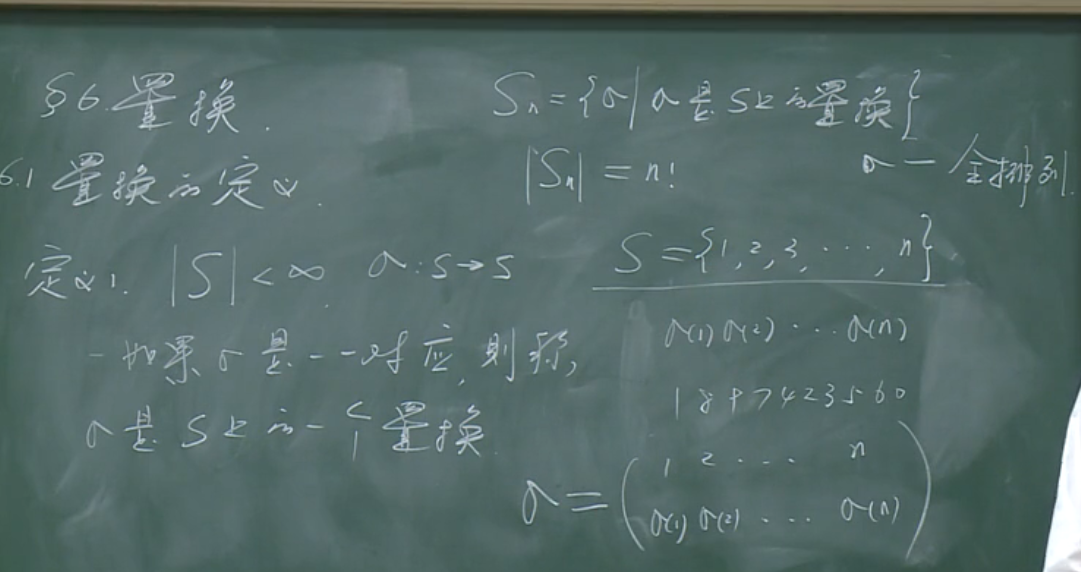 §6. 置换.
6.1 置换的定义.
定义1. |S| < ∞ σ: S → S
如果σ是一一对应, 则称,
σ是S上的一个置换.
Sₙ = {σ | σ是S上的置换}
|Sₙ| = n! σ — 全排列.
S = {1, 2, 3, ⋯, n}
σ(1) σ(2) ⋯ σ(n)
1 8 9 7 4 2 3 5 6 0
σ = ( 1 2 ⋯ n
σ(1) σ(2) ⋯ σ(n) )